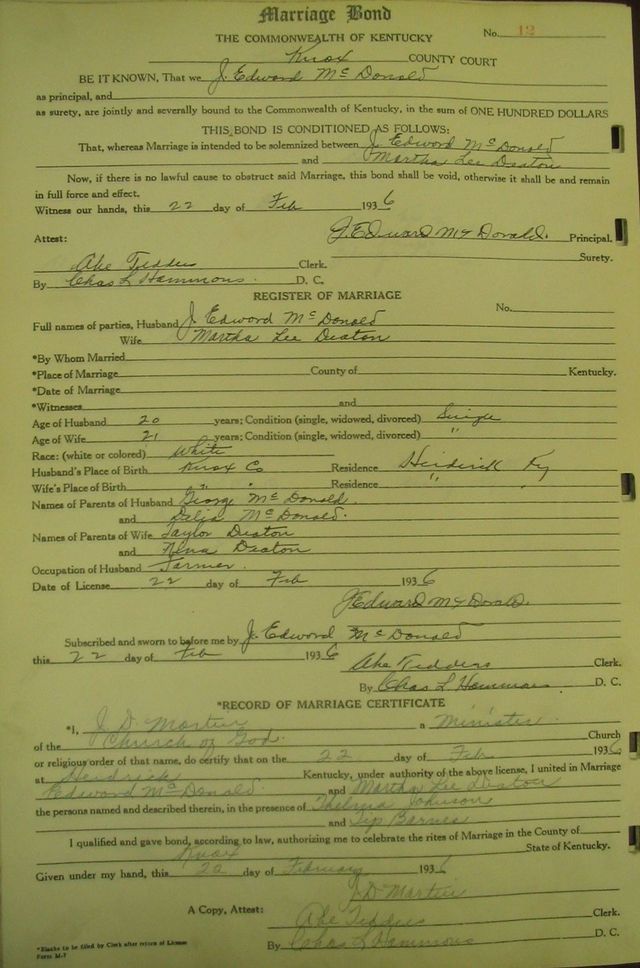 Marriage Bond
THE COMMONWEALTH OF KENTUCKY No. 12
Knox COUNTY COURT
BE IT KNOWN, That we J. Edward McDonald
as principal, and
as surety, are jointly and severally bound to the Commonwealth of Kentucky, in the sum of ONE HUNDRED DOLLARS
THIS BOND IS CONDITIONED AS FOLLOWS:
That, whereas Marriage is intended to be solemnized between J. Edward McDonald
and Martha Lee Deaton
Now, if there is no lawful cause to obstruct said Marriage, this bond shall be void, otherwise it shall be and remain
in full force and effect.
Witness our hands, this 22 day of Feb 1936
J. Edward McDonald. Principal.
Attest: Surety.
Abe Tedders Clerk.
By Chas L Hammons. D. C.
REGISTER OF MARRIAGE
No.
Full names of parties, Husband J. Edward McDonald
Wife Martha Lee Deaton
*By Whom Married
*Place of Marriage County of Kentucky.
*Date of Marriage
*Witnesses and
Age of Husband 20 years; Condition (single, widowed, divorced) Single
Age of Wife 21 years; Condition (single, widowed, divorced) "
Race: (white or colored) White
Husband's Place of Birth Knox Co Residence Ky
Wife's Place of Birth " " Residence " "
Names of Parents of Husband George McDonald
and Delia McDonald.
Names of Parents of Wife Taylor Deaton
and Deaton
Occupation of Husband Farmer.
Date of License 22 day of Feb 1936
J Edward McDonald.
Subscribed and sworn to before me by J. Edward McDonald
this 22 day of Feb 1936
Abe Tedders Clerk.
By Chas L. Hammons D. C.
*RECORD OF MARRIAGE CERTIFICATE
*I, J. D. Martin a Minister.
of the Church of God. Church
or religious order of that name, do certify that on the 22 day of Feb 1936,
at Hendrick Kentucky, under authority of the above license, I united in Marriage
Edward McDonald and Martha Lee Deaton
the persons named and described therein, in the presence of Thelma Johnson
and Tip Barnes
I qualified and gave bond, according to law, authorizing me to celebrate the rites of Marriage in the County of
Knox State of Kentucky.
Given under my hand, this 22 day of February 1936
J. D. Martin
A Copy, Attest: Abe Tedders Clerk.
By Chas L Hammons D. C.
*Blanks to be filled by Clerk after return of License
Form M-7